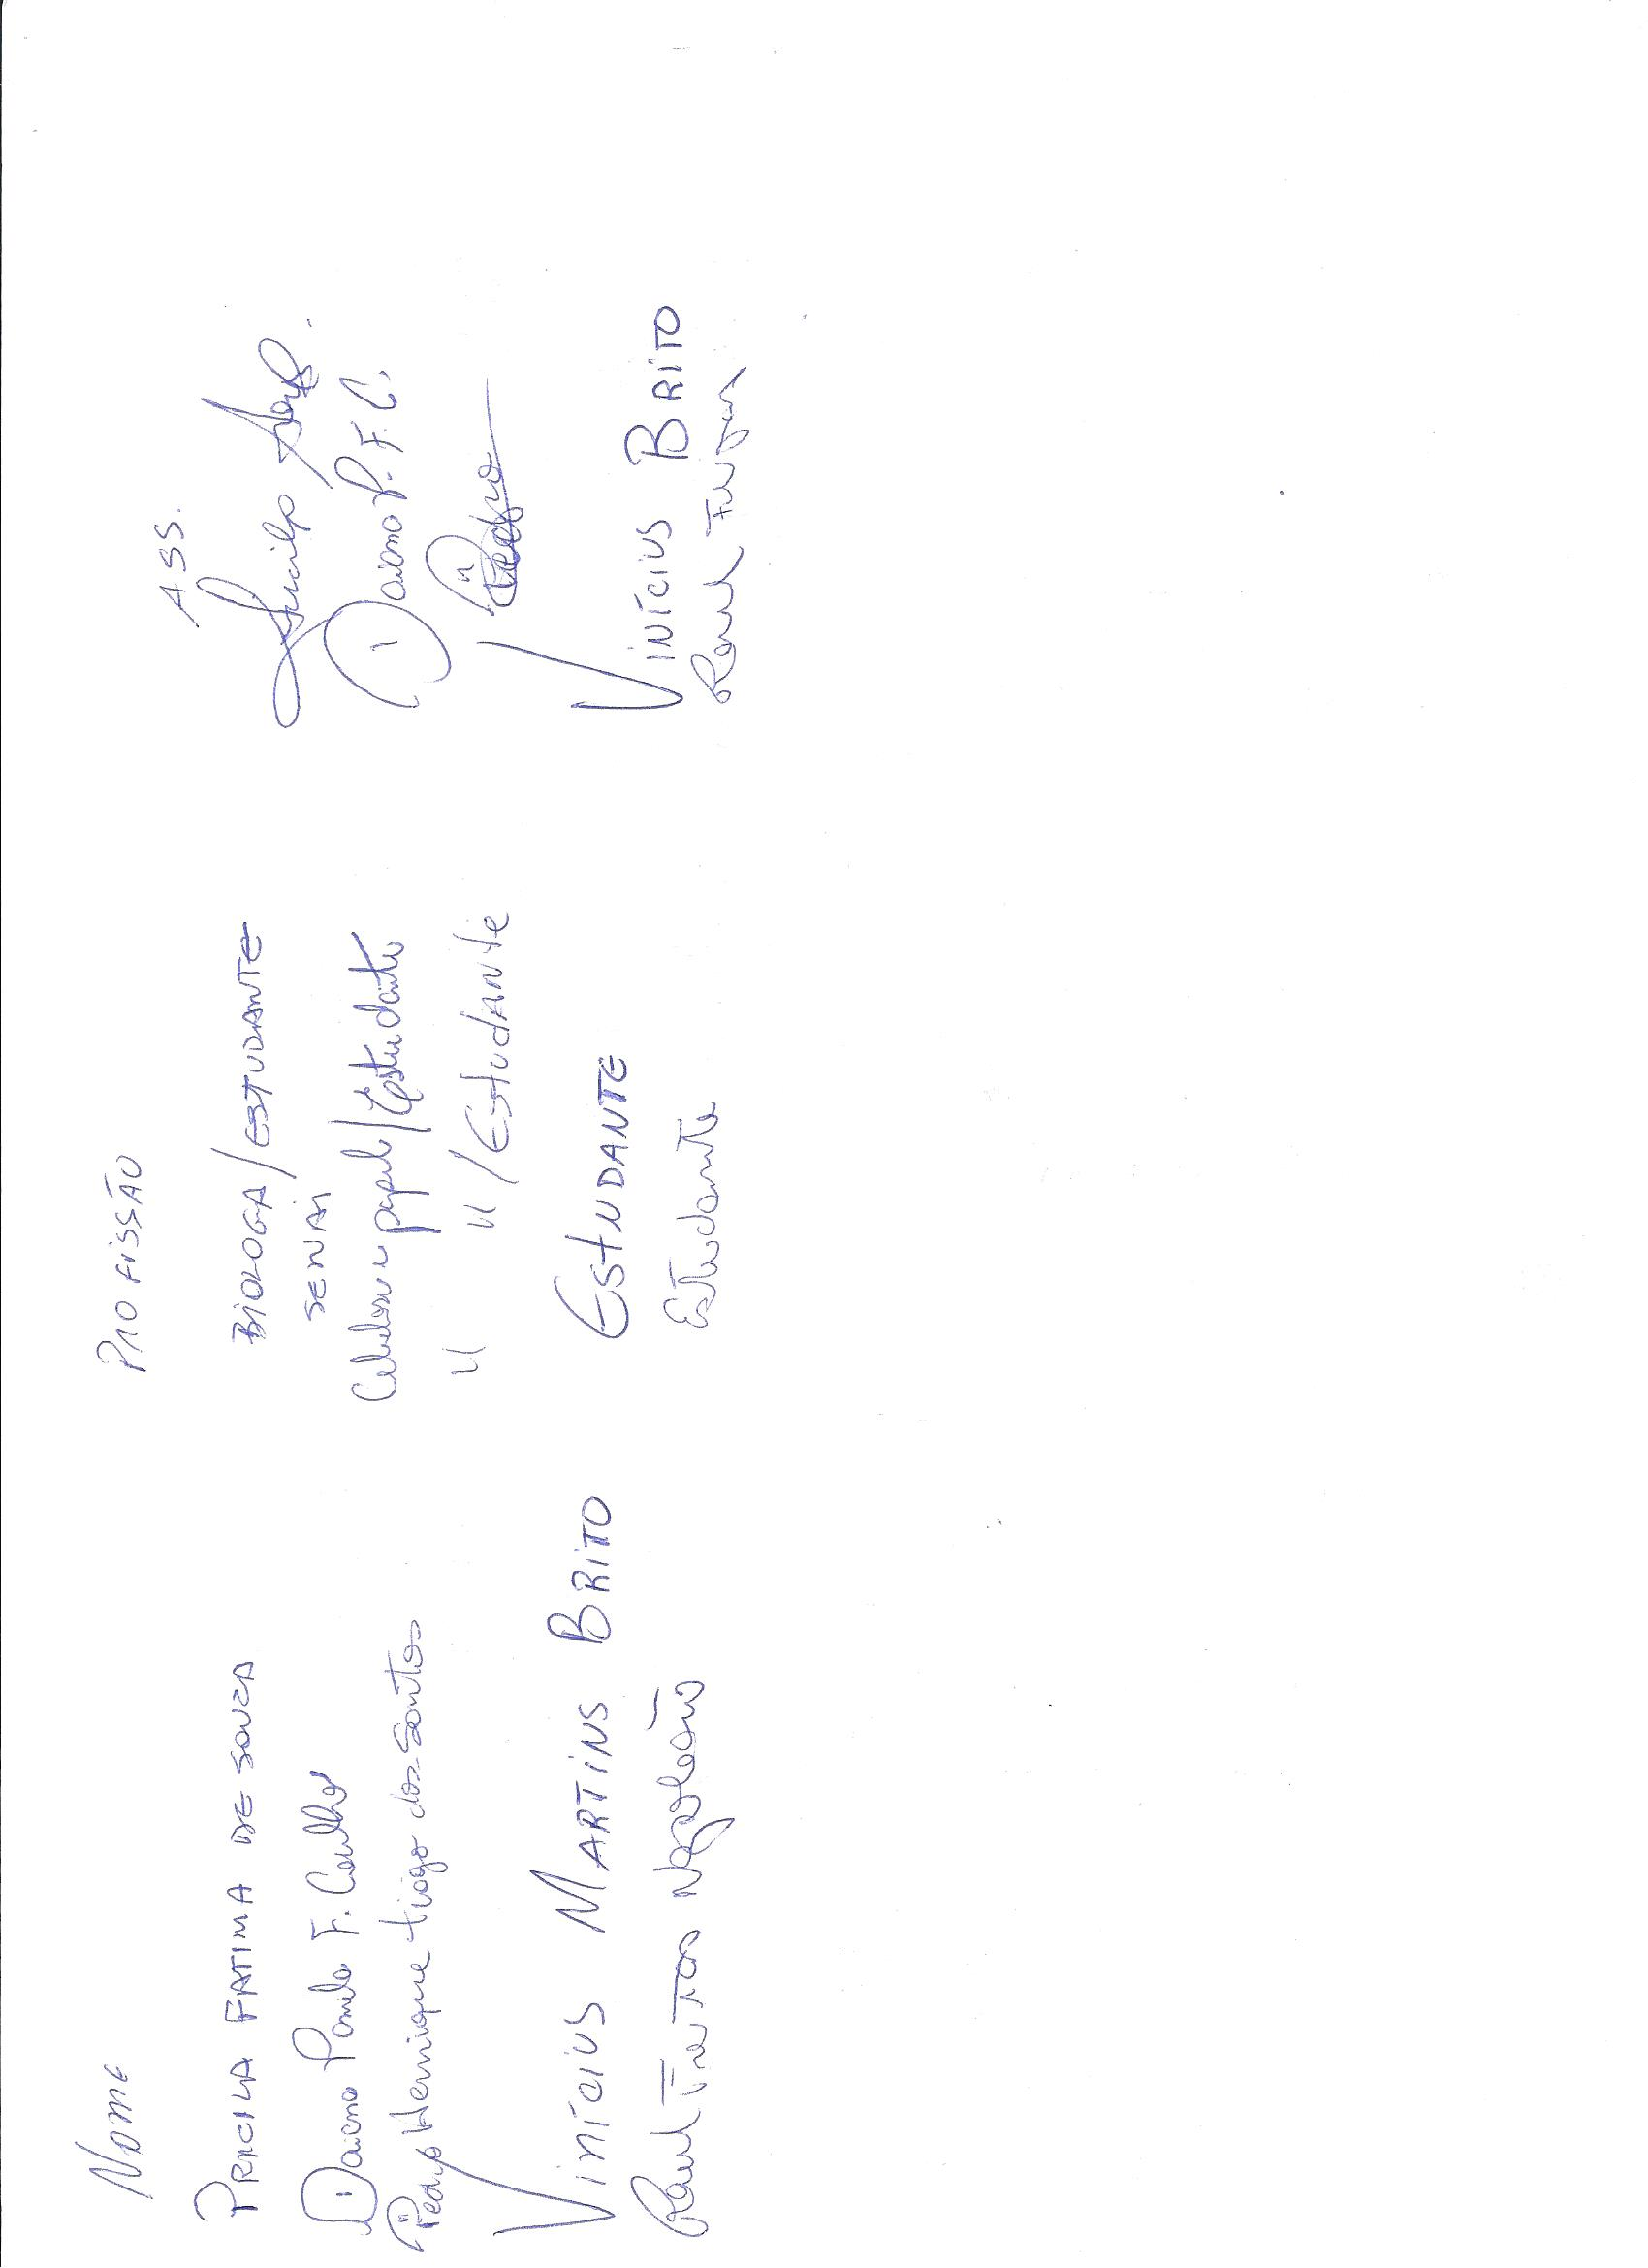 Nome PROFISSÃO ASS.
PRICILA FATIMA DE SOUZA BIOLOGA/ESTUDANTE
SENAI
Daiana Pamela F. Coelho Celulose e papel/Estudante Daiana P. F. C.
Pedro Henrique tiago dos Santos " " /Estudante Pedro
VINÍCIUS MARTINS BRITO ESTUDANTE VINÍCIUS BRITO
Raul Freitas Napoleão Estudante Raul